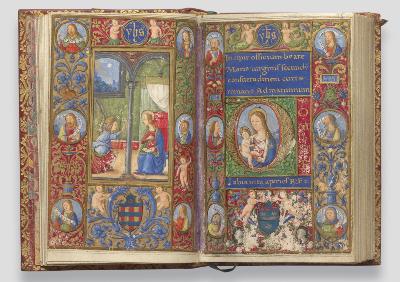 yhs
yhs
Incipit officium beate
Marie virginis secundum
consuetudinem curie
romane. Ad matutinum
labia mea aperies. R. E t